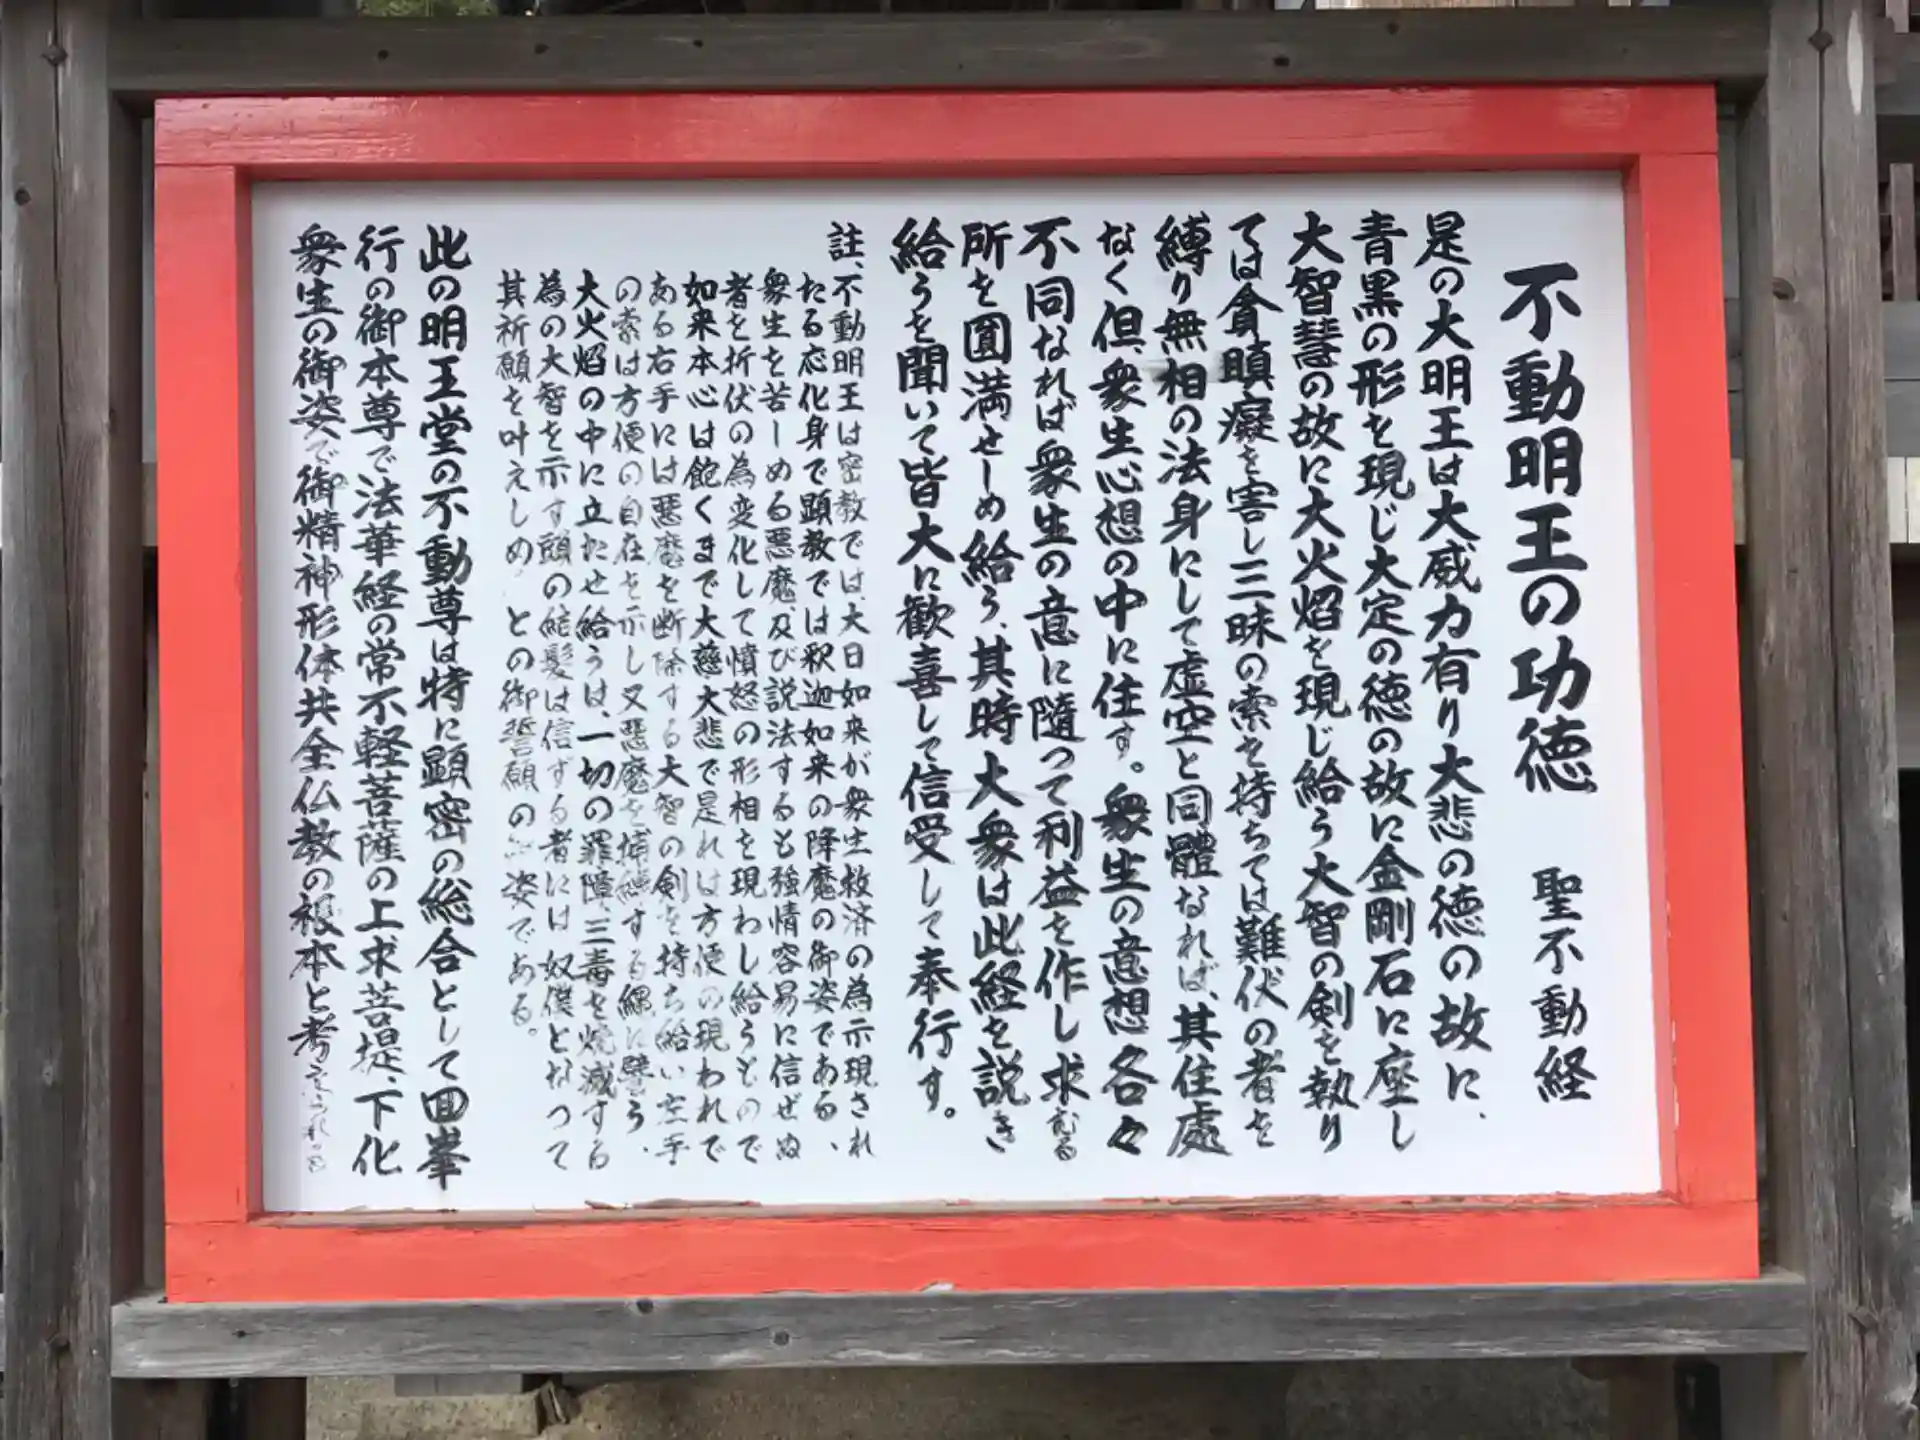 不動明王の功徳　聖不動経
是の大明王は大威力有り大悲の徳の故に、
青黒の形を現じ大定の徳の故に金剛石に座し
大智慧の故に大火焰を現じ給う大智の剣を執り
ては貪瞋癡を害し三昧の索を持ちては難伏の者を
縛り無相の法身にして虚空と同體なれば、其住處
なく但、衆生心想の中に住す。衆生の意想各々
不同なれば衆生の意に隨って利益を作し求むる
所を圓満せしめ給う、其時大衆は此経を説き
給うを聞いて皆大に歓喜して信受して奉行す。
註、不動明王は密教では、大日如来が衆生救済の為示現され
たる応化身で顕教では釈迦如来の降魔の御姿である、
衆生を苦しめる悪魔、及び説法するも強情容易に信ぜぬ
者を折伏の為変化して憤怒の形相を現わし給うもので
如来本心は飽くまで大慈大悲で是れは方便の現われで
ある右手には悪魔を断除する大智の剣を持ち給い左手
の索は方便の自在を示し又悪魔を捕縛する縄に譬う、
大火焰の中に立たせ給うは、一切の罪障、三毒を焼滅する
為の大智を示す頭の結髪は信ずる者には奴僕となって
其祈願を叶えしめ との御誓願の 姿である。
此の明王堂の不動尊は特に顕密の総合として回峯
行の御本尊で法華経の常不軽菩薩の上求菩提、下化
衆生の御姿で御精神形体共全仏教の根本と考